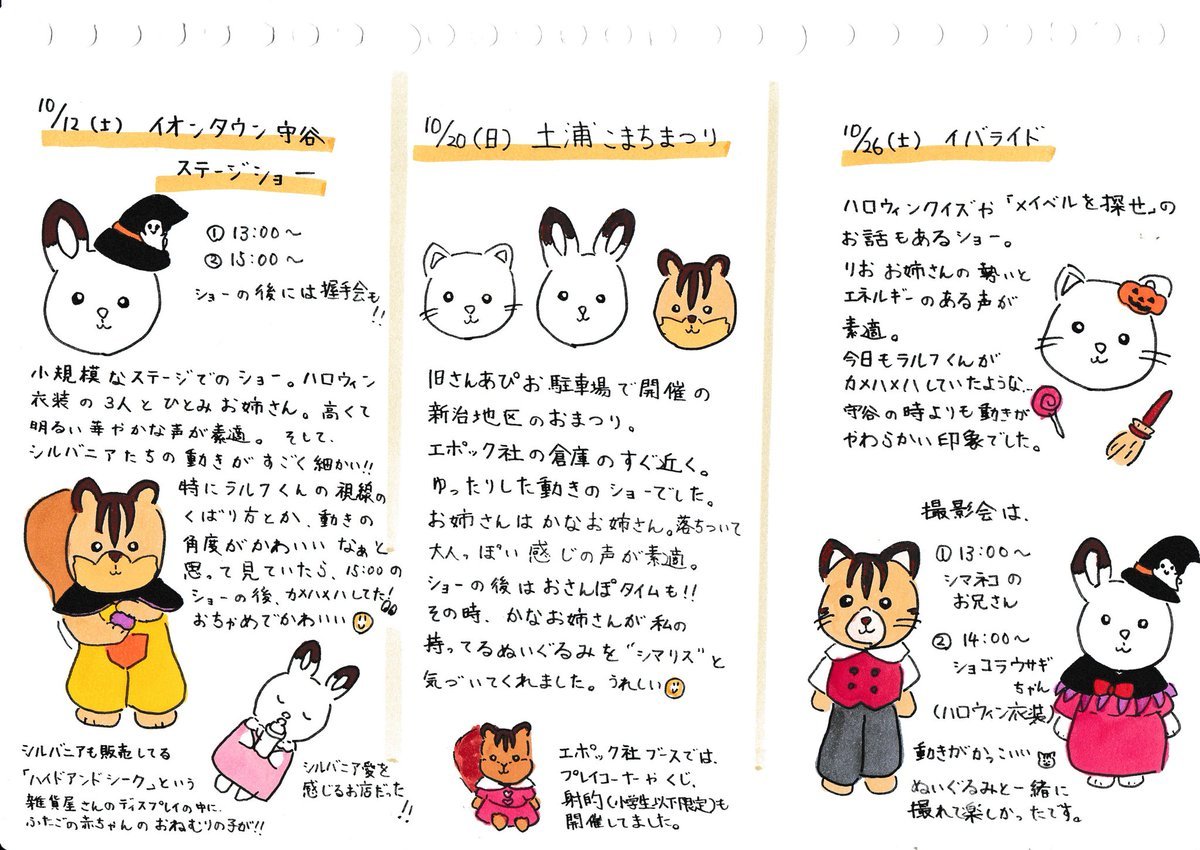 10/12(土) イオンタウン守谷
ステージショー
① 13:00〜
② 15:00〜
ショーの後には握手会も!!
小規模なステージでのショー。ハロウィン
衣装の3人とひとみお姉さん。高くて
明るい華やかな声が素適。そして、
シルバニアたちの動きがすごく細かい!!
特にラルフくんの視線の
くばり方とか、動きの
角度がかわいいなぁと
思って見ていたら、15:00の
ショーの後、カメハメハしてた!
おちゃめでかわいい
シルバニアも販売してる
「ハイドアンドシーク」という
雑貨屋さんのディスプレイの中に、
ふたごの赤ちゃんのおねむりの子が!!
シルバニア愛を
感じるお店だった!!
10/20(日) 土浦こまちまつり
旧さんあぴお駐車場で開催の
新治地区のおまつり。
エポック社の倉庫のすぐ近く。
ゆったりした動きのショーでした。
お姉さんはかなお姉さん。落ちついて
大人っぽい感じの声が素適。
ショーの後はおさんぽタイムも!!
その時、かなお姉さんが私の
持ってるぬいぐるみを"シマリス"と
気づいてくれました。うれしい
エポック社ブースでは、
プレイコーナーやくじ、
射的(小学生以下限定)も
開催してました。
10/26(土) イバライド
ハロウィンクイズや「メイベルを探せ」の
お話もあるショー。
りおお姉さんの勢いと
エネルギーのある声が
素適。
今日もラルフくんが
カメハメハしていたような…
守谷の時よりも動きが
やわらかい印象でした。
撮影会は、
① 13:00〜
シマネコの
お兄さん
② 14:00〜
ショコラウサギ
ちゃん
(ハロウィン衣装)
動きがかっこいい
ぬいぐるみと一緒に
撮れて楽しかったです。